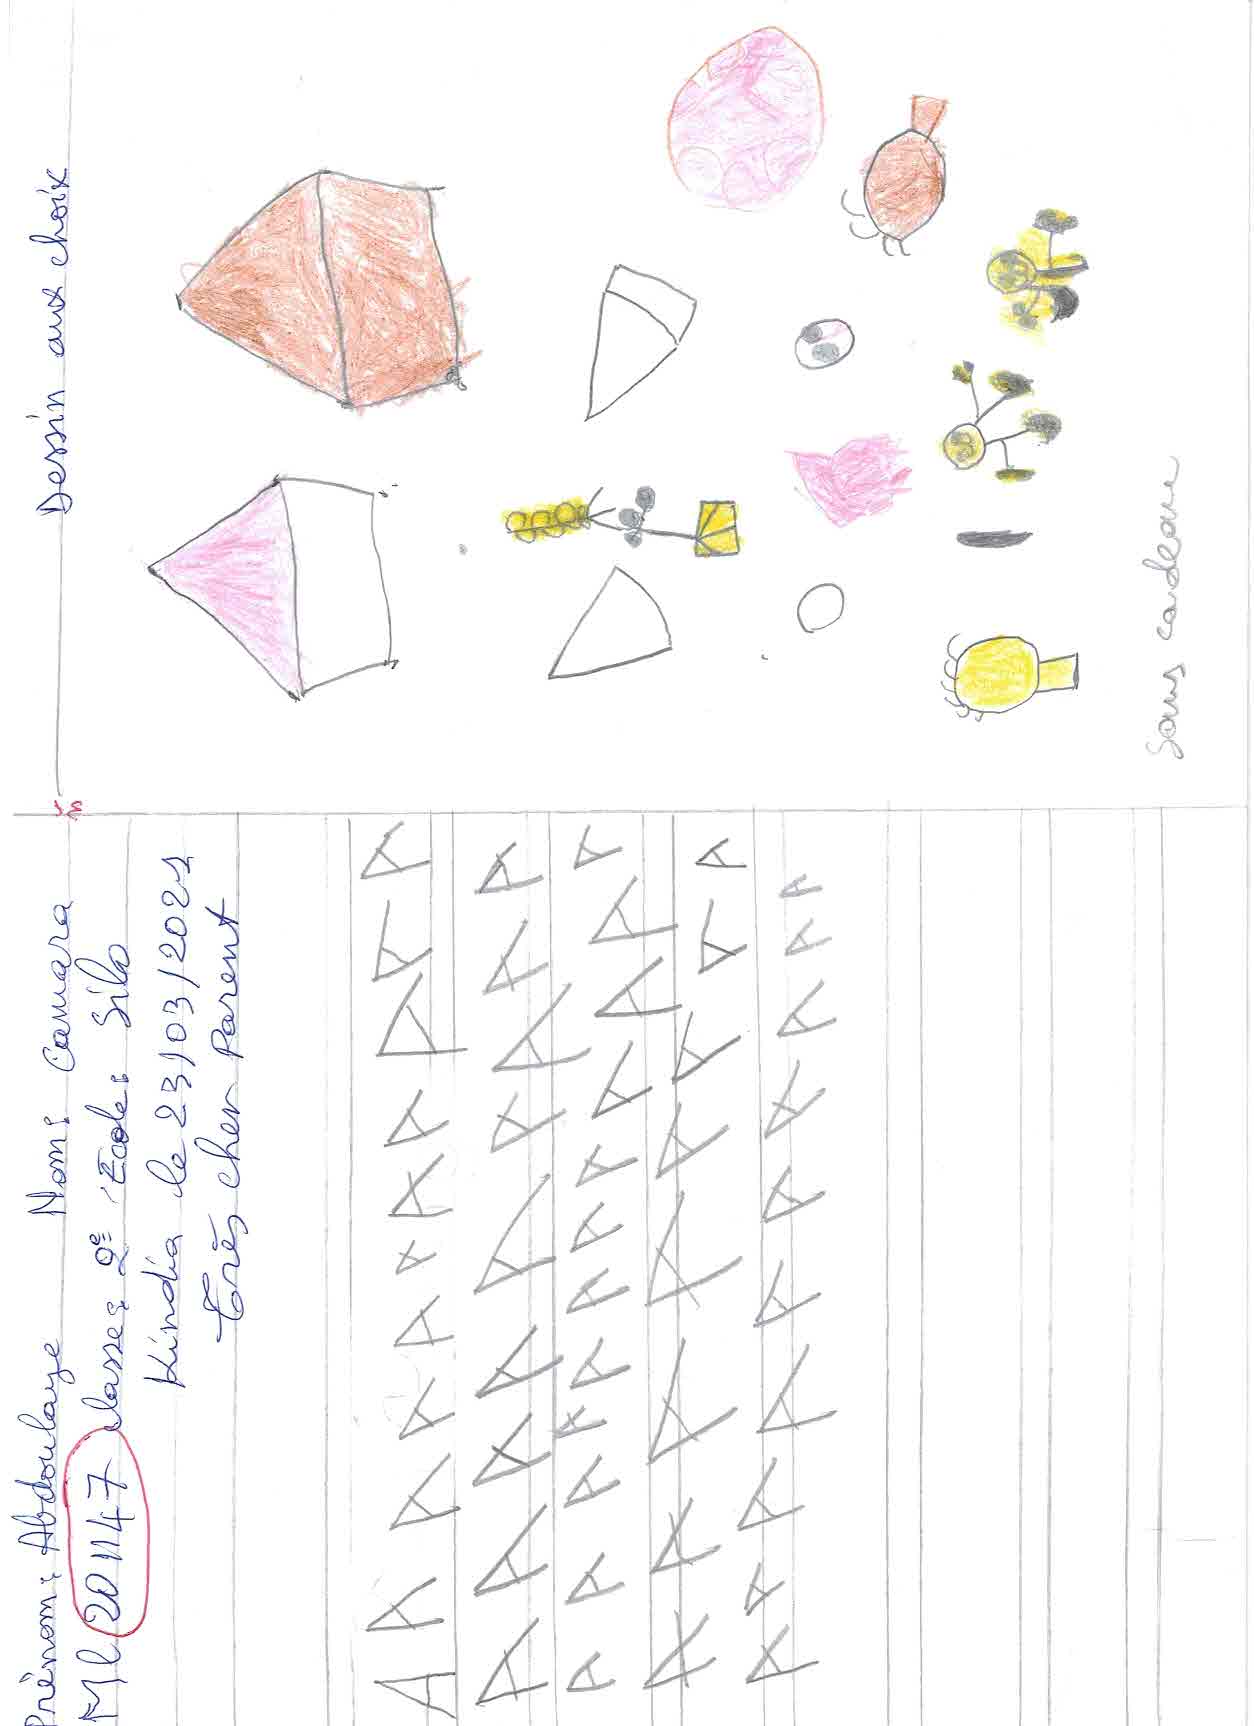 Prénom: Abdoulaye Nom: Camara
Ml 201147 classe: 2e Ecole:
Kindia le 23/03/2021
très cher parent
A A A A A A A A A A A
A A A A A A A A A
A A A A A A A A A A A A
A A A A A A A A
A A A A A A A A A A
Dessin aux choix
Sans cadeau